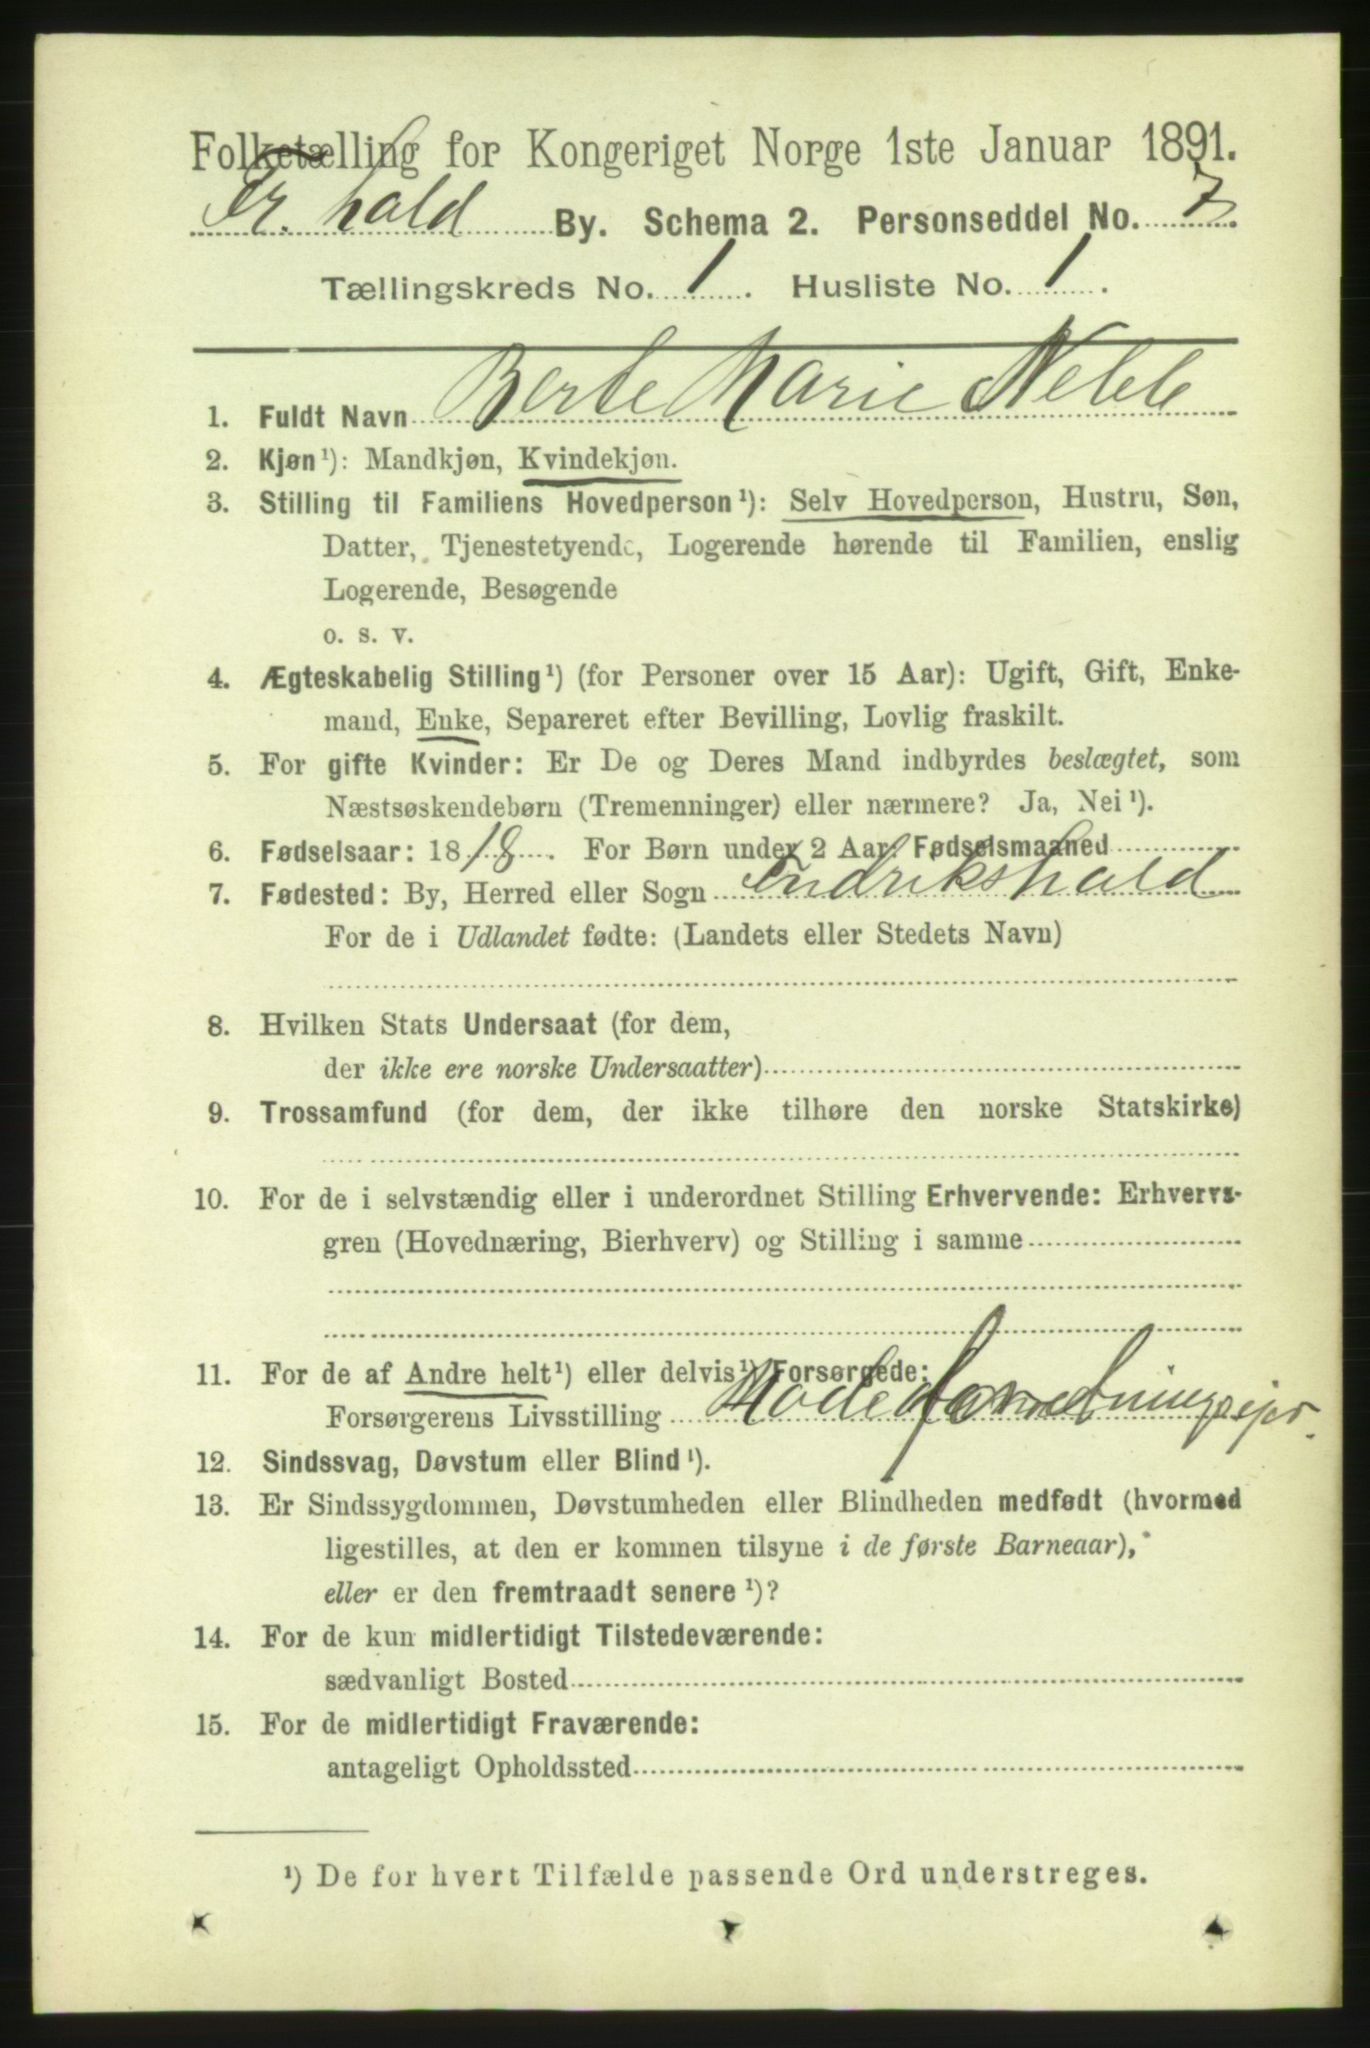 Folketælling for Kongeriget Norge 1ste Januar 1891.
Fr. hald By. Schema 2. Personseddel No. 7.
Tællingskreds No. 1. Husliste No. 1.
1. Fuldt Navn Berte Marie
2. Kjøn¹): Mandkjøn, Kvindekjøn.
3. Stilling til Familiens Hovedperson¹): Selv Hovedperson, Hustru, Søn,
Datter, Tjenestetyende, Logerende hørende til Familien, enslig
Logerende, Besøgende
o. s. v.
4. Ægteskabelig Stilling¹) (for Personer over 15 Aar): Ugift, Gift, Enke-
mand, Enke, Separeret efter Bevilling, Lovlig fraskilt.
5. For gifte Kvinder: Er De og Deres Mand indbyrdes beslægtet, som
Næstsøskendebørn (Tremenninger) eller nærmere? Ja, Nei¹).
6. Fødselsaar: 1818. For Børn under 2 Aar: Fødselsmaaned
7. Fødested: By, Herred eller Sogn Fredrikshald
For de i Udlandet fødte: (Landets eller Stedets Navn)
8. Hvilken Stats Undersaat (for dem,
der ikke ere norske Undersaatter)
9. Trossamfund (for dem, der ikke tilhøre den norske Statskirke)
10. For de i selvstændig eller i underordnet Stilling Erhvervende: Erhvervs-
gren (Hovednæring, Bierhverv) og Stilling i samme
11. For de af Andre helt¹) eller delvis¹) Forsørgede:
Forsørgerens Livsstilling
12. Sindssvag, Døvstum eller Blind¹).
13. Er Sindssygdommen, Døvstumheden eller Blindheden medfødt (hvormed
ligestilles, at den er kommen tilsyne i de første Barneaar),
eller er den fremtraadt senere¹)?
14. For de kun midlertidigt Tilstedeværende:
sædvanligt Bosted
15. For de midlertidigt Fraværende:
antageligt Opholdssted
¹) De for hvert Tilfælde passende Ord understreges.